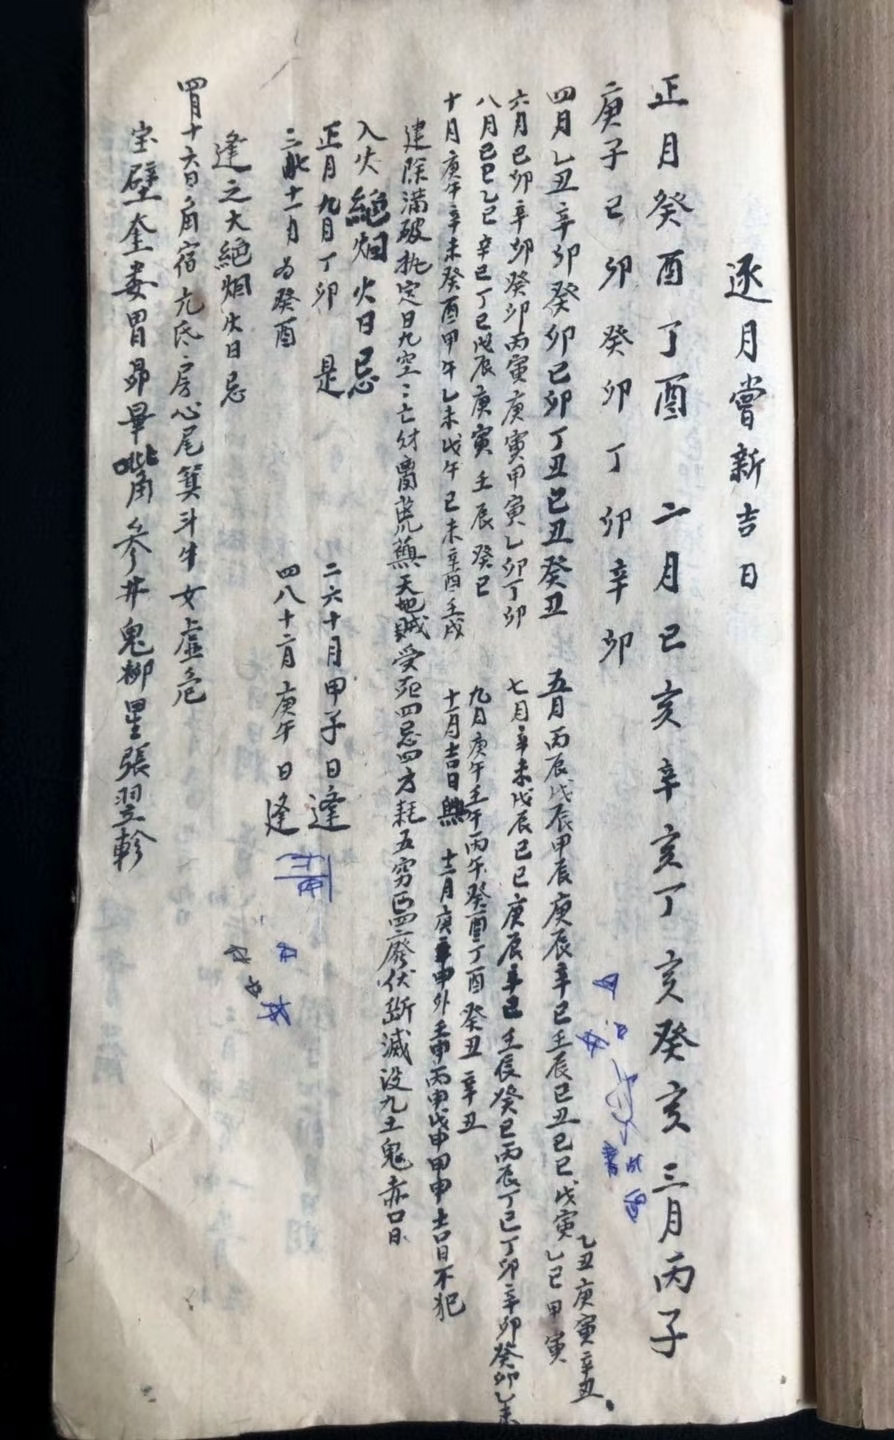 逐月嘗新吉日
正月癸酉丁酉 二月己亥辛亥丁亥癸亥三月丙子
庚子己卯癸卯丁卯辛卯
四月乙丑辛卯癸卯己卯丁丑己丑癸丑 五月丙辰戊辰甲辰庚辰辛巳壬辰己丑己巳戊寅乙巳甲寅
乙丑庚寅辛丑
六月己卯辛卯癸卯丙寅庚寅甲寅乙卯丁卯 七月辛未戊辰己巳庚辰辛巳壬辰癸巳丙辰丁巳丁卯辛卯癸卯乙未
八月己巳乙巳辛巳丁巳戊辰庚寅壬辰癸巳 九月庚午壬午丙午癸酉丁酉癸丑辛丑
十月庚午辛未癸酉甲午乙未戊午己未辛酉壬戌 十一月吉日無 十二月庚申外壬申丙申戊申甲申吉日不犯
建除滿破执定日九空亡財荒蕪天地賊受死四忌四方耗五穷四廢伏斷滅没九土鬼赤口日
入火絶烟火日忌
正月九月丁卯 是 二六十月甲子日逢
十一月為癸酉 四八十二月庚午日逢
逢之大絶烟火日忌
四月十六日角宿亢氐房心尾箕斗牛女虚危
室壁奎娄胃昴畢觜参井鬼柳星張翌軫